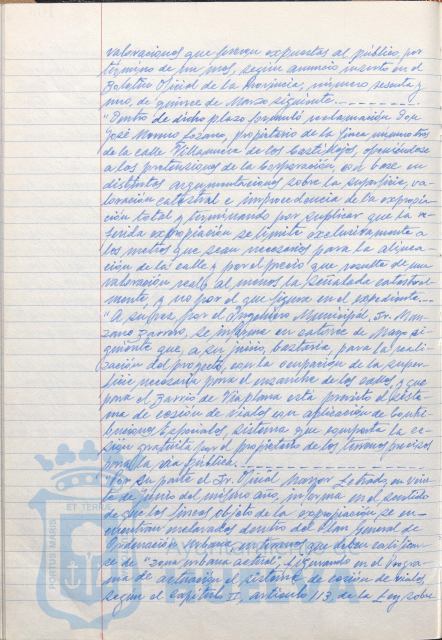 valoraciones que fueron expuestas al público, por
término de un mes, según anuncio inserto en el
Boletín Oficial de la Provincia, número sesenta y
uno, de quince de Marzo siguiente.
"Dentro de dicho plazo formuló reclamación Don
José Moreno Lozano, propietario de la finca número tres
de la calle Villanueva de los Castillejos, oponiéndose
a las pretensiones de la Corporación en base en
distintas argumentaciones sobre la superficie, va-
loración catastral e improcedencia de la expropia-
ción total y terminando por suplicar que la re-
ferida expropiación se limite exclusivamente a
los metros que sean necesarios para la alinea-
ción de la calle y por el precio que resulte de una
valoración real o al menos la señalada catastral-
mente, y no por el que figura en el expediente.
"A su vez por el Ingeniero Municipal, Sr. Man-
zano, se informa en catorce de Mayo si-
guiente que, a su juicio, bastaría para la reali-
zación del proyecto, con la ocupación de la super-
ficie necesaria para el ensanche de las calles, y que
para el Barrio de Viaplana está previsto el siste-
ma de cesión de viales con aplicación de Contri-
buciones Especiales, sistema que comporta la ce-
sión gratuita por el propietario de los terrenos precisos
para la vía pública.
"Por su parte el Sr. Oficial Mayor Letrado, en vein-
te de junio del mismo año, informa en el sentido
de que las fincas objeto de la expropiación se en-
cuentran enclavadas dentro del Plan General de
Ordenación Urbana en terrenos que deben calificar-
se de "zona urbana actual", figurando en el Progra-
ma de actuación el sistema de cesión de viales,
según el Capítulo II, artículo 113, de la Ley sobre
PORTUS MARIS
ET TERRAE